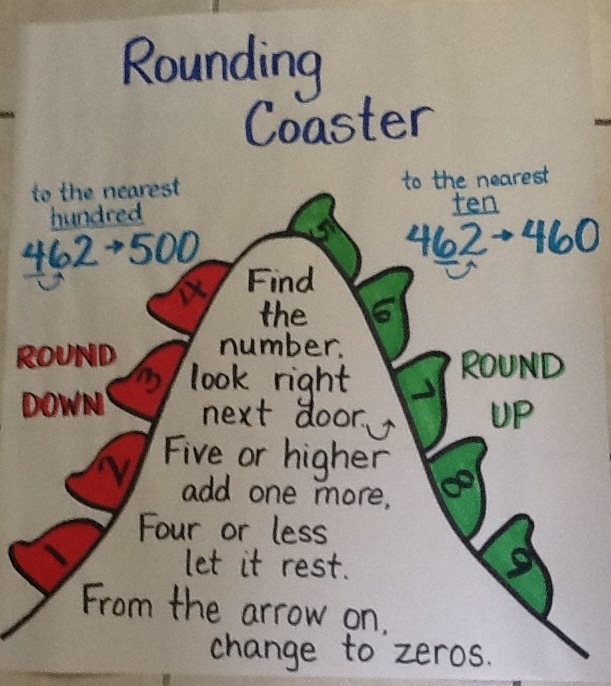 Rounding
Coaster
to the nearest
hundred
462→500
to the nearest
ten
462→460
ROUND
DOWN
4
3
2
1
Find
the
number.
look right
next door.
Five or higher
add one more.
Four or less
let it rest.
From the arrow on,
change to zeros.
5
6
7
8
9
ROUND
UP